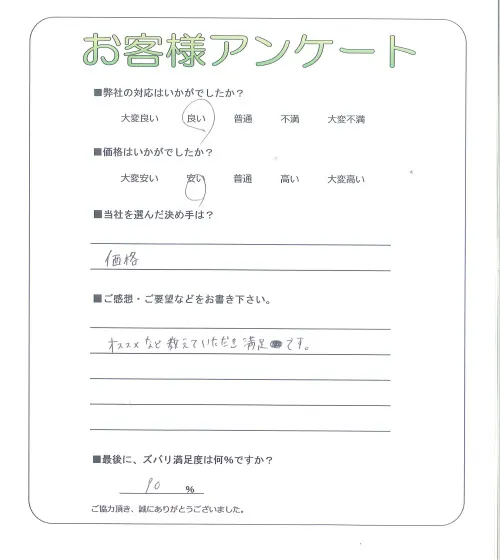 お客様アンケート
■弊社の対応はいかがでしたか？
大変良い 良い 普通 不満 大変不満
■価格はいかがでしたか？
大変安い 安い 普通 高い 大変高い
■当社を選んだ決め手は？
価格
■ご感想・ご要望などをお書き下さい。
オススメなど教えていただき満足です。
■最後に、ズバリ満足度は何%ですか？
90 %
ご協力頂き、誠にありがとうございました。